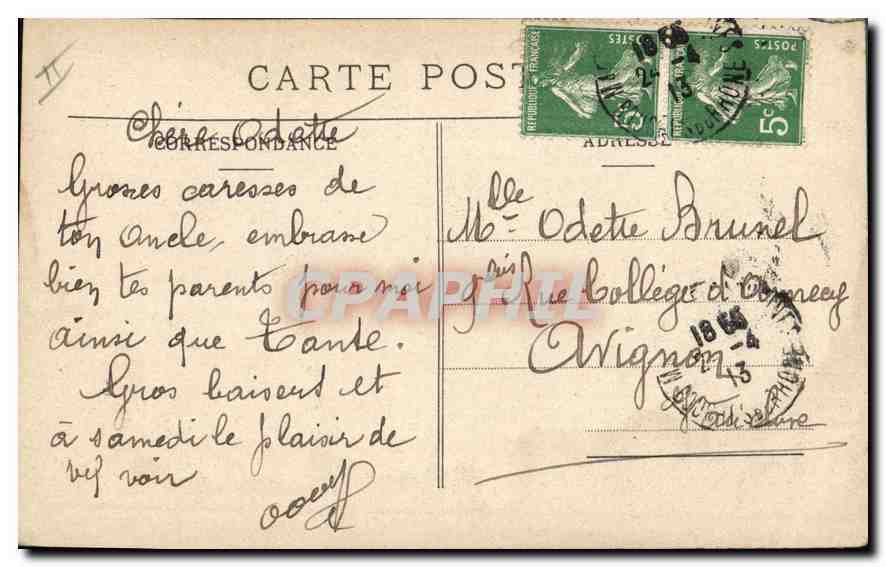 II
CARTE POST
CORRESPONDANCE
ADRESSE
Chère Odette
Grosses caresses de
ton oncle, embrasse
bien tes parents pour moi
ainsi que Tante.
Gros baisers et
à samedi le plaisir de
vs voir
Mlle Odette Brunel
9 bis Rue Collège d'Annecy
Avignon
Vaucluse
POSTES
REPUBLIQUE FRANÇAISE
5c
POSTES
REPUBLIQUE FRANÇAISE
5c
18
2 -4
13
18
2 -4
13
CPAPHIL